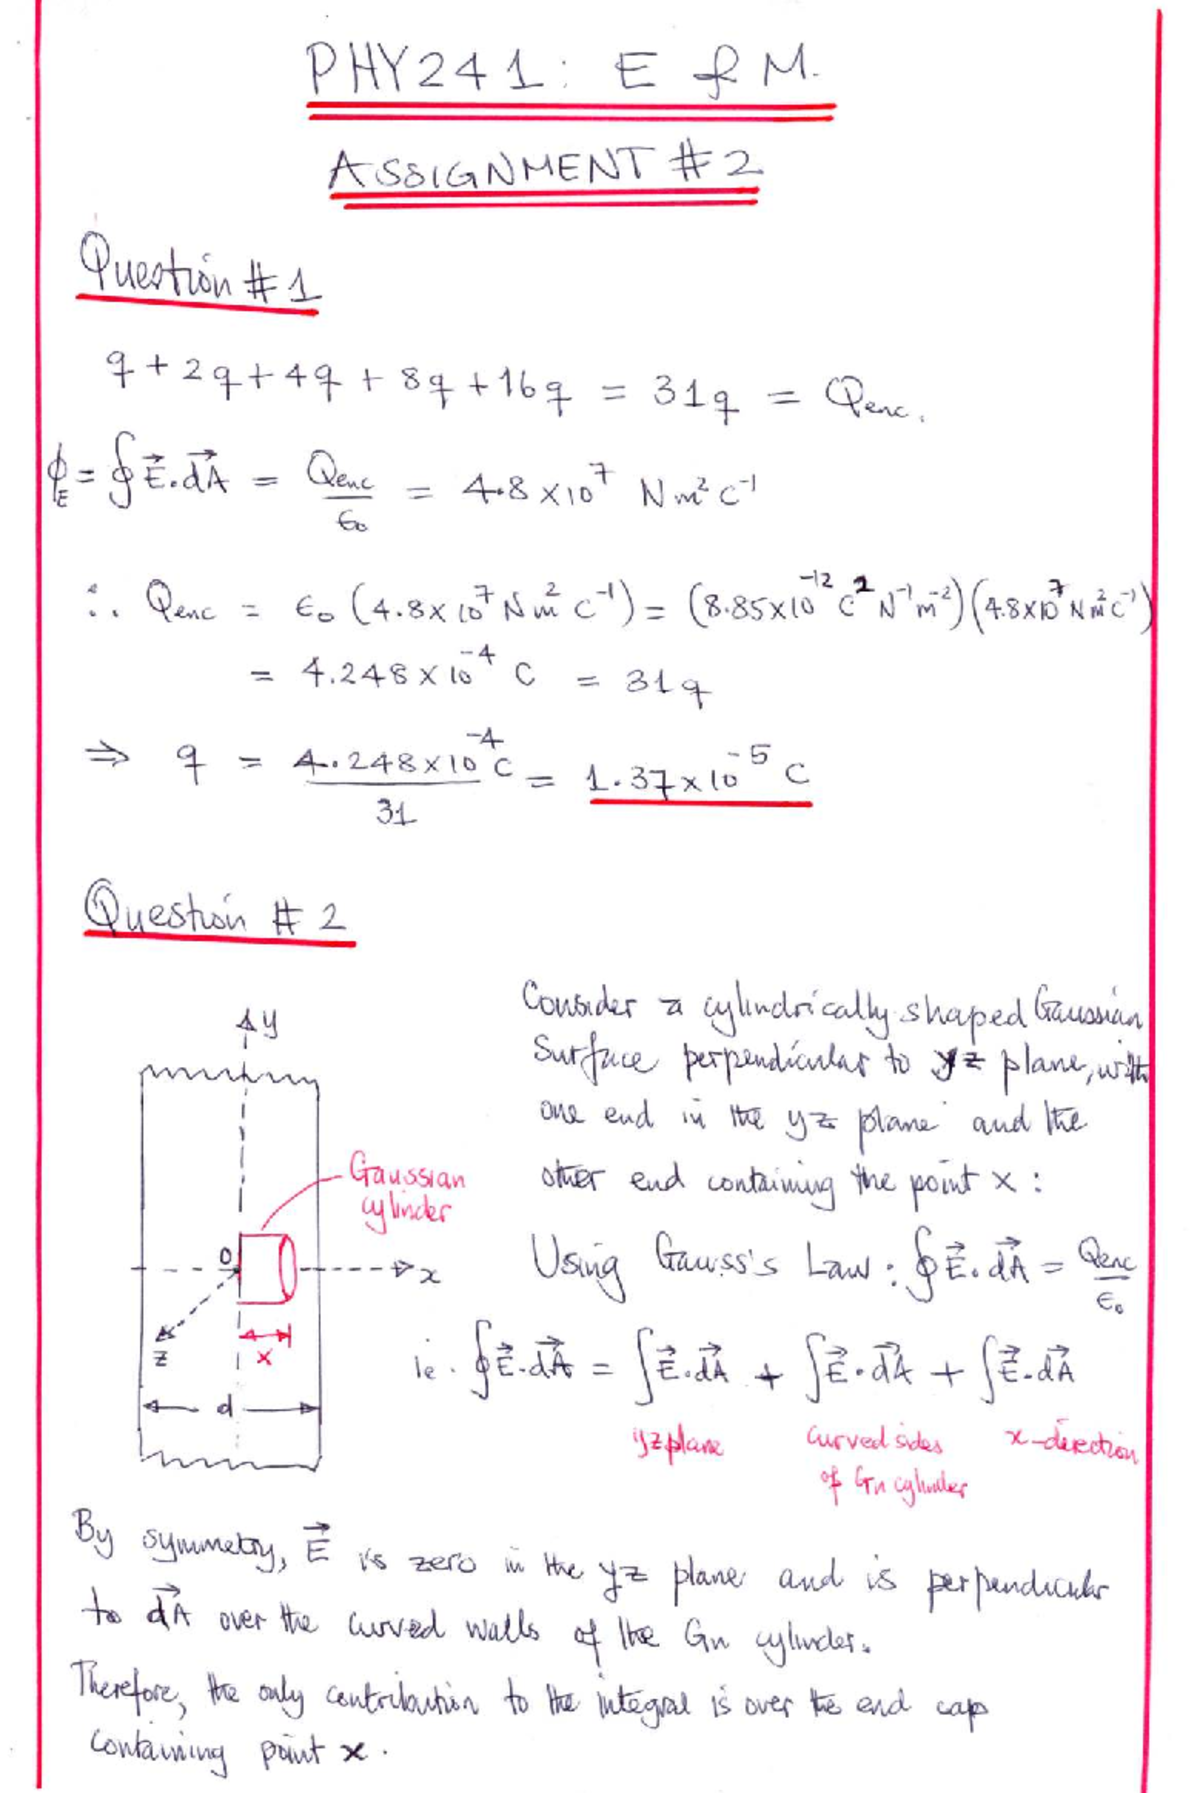 PHY241: E & M.
ASSIGNMENT #2
Question #1
q + 2q + 4q + 8q + 16q = 31q = Qenc.
ϕE = ∮E⃗.dA⃗ = Qenc/ε₀ = 4.8 × 10⁷ N m² C⁻¹
∴ Qenc = ε₀ (4.8 × 10⁷ N m² C⁻¹) = (8.85×10⁻¹² C² N⁻¹ m⁻²)(4.8×10⁷ N m² C⁻¹)
= 4.248 × 10⁻⁴ C = 31q
⇒ q = 4.248×10⁻⁴ C / 31 = 1.37×10⁻⁵ C
Question #2
y
Gaussian
cylinder
O
x
z
x
d
Consider a cylindrically shaped Gaussian
Surface perpendicular to yz plane, with
one end in the yz plane and the
other end containing the point x :
Using Gauss's Law : ∮E⃗.dA⃗ = Qenc/ε₀
ie. ∮E⃗.dA⃗ = ∫E⃗.dA⃗ + ∫E⃗.dA⃗ + ∫E⃗.dA⃗
yz plane
curved sides
of Gn cylinder
x-direction
By symmetry, E⃗ is zero in the yz plane and is perpendicular
to dA⃗ over the curved walls of the Gn cylinder.
Therefore, the only contribution to the integral is over the end cap
containing point x.